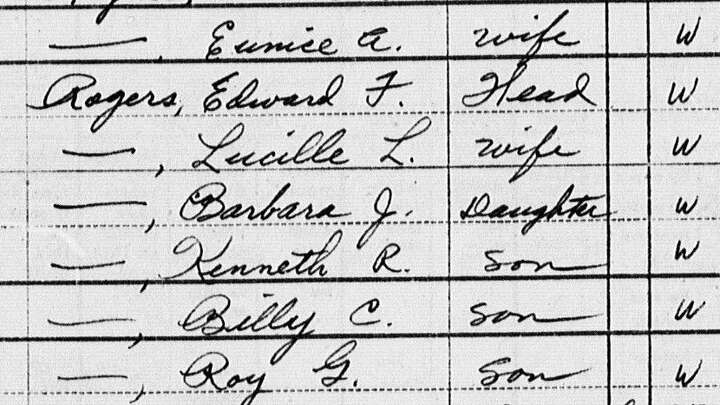 —, Eunice A. wife W
Rogers, Edward F. Head W
—, Lucille L. wife W
—, Barbara J. Daughter W
—, Kenneth R. son W
—, Billy C. son W
—, Roy G. son W